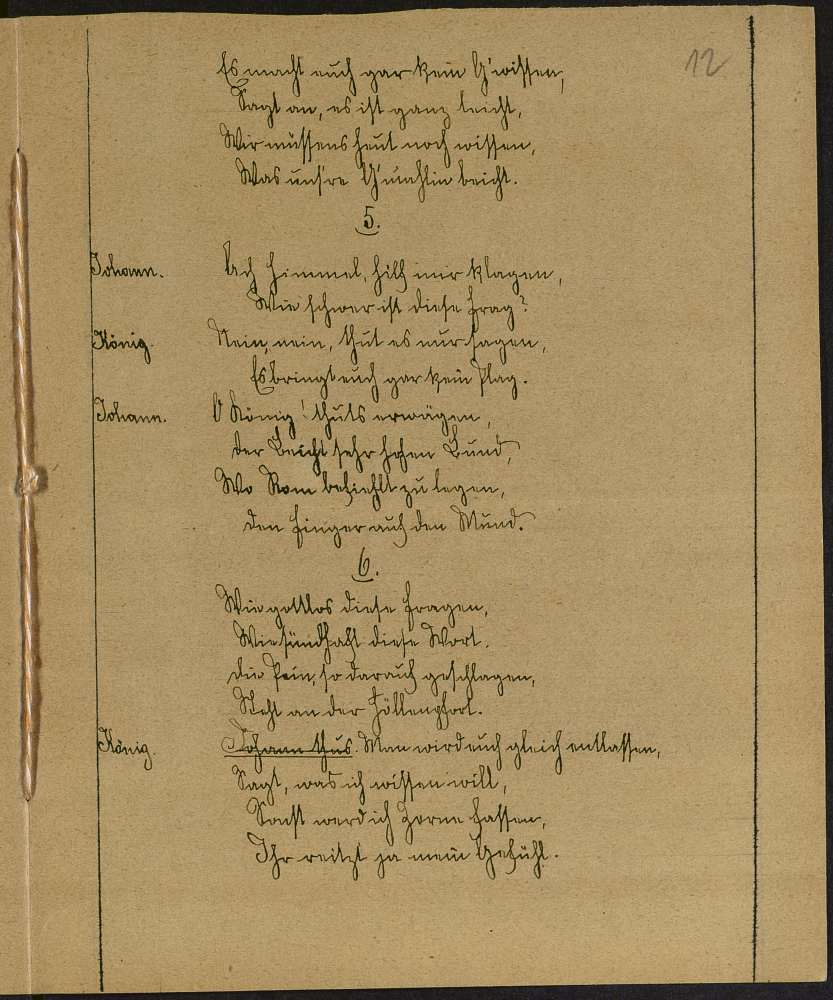 12
Es macht euch gar kein G'wissen,
Sagt an, es ist ganz leicht,
Wir müssens heut noch wissen,
Was uns're G'mahlin beicht.
5.
Johann. Ach Himmel, hilf mir klagen,
Wie schwer ist diese Frag?
König. Nein, nein, thut es nur sagen,
Es bringt euch gar kein Plag.
Johann. O König! thuts erwägen,
Der Beicht sehr hohen Bund,
Wo Rom befiehlt zu legen,
Den Finger auf den Mund.
6.
Wie gottlos diese Fragen,
Wie sündhaft diese Wort.
Die Pein, so darauf geschlagen,
Steht an der Höllenpfort.
König. Johann thus. Man wird euch gleich entlassen,
Sagt, was ich wissen will,
Sonst werd ich Zorne fassen,
Ihr reitzt ja mein Gefühl.